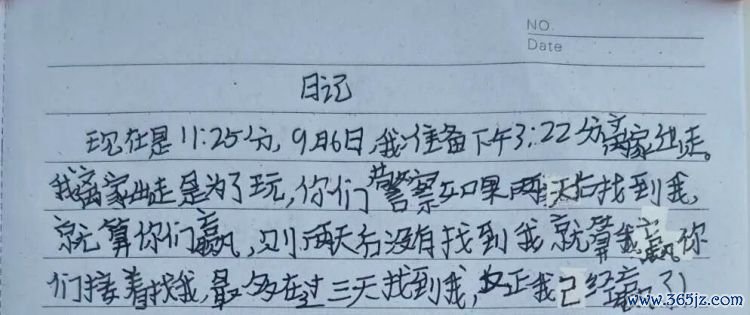 NO.
Date
日记
现在是11:25分,9月6日,我准备下午3:22分离家出走。
我离家出走是为了玩,你们警察如果两天后找到我,
就算你们赢,则两天后没有找到我就算我赢你
们接着找我,最多在过三天找到我,反正我已经赢了!
www.365jz.com